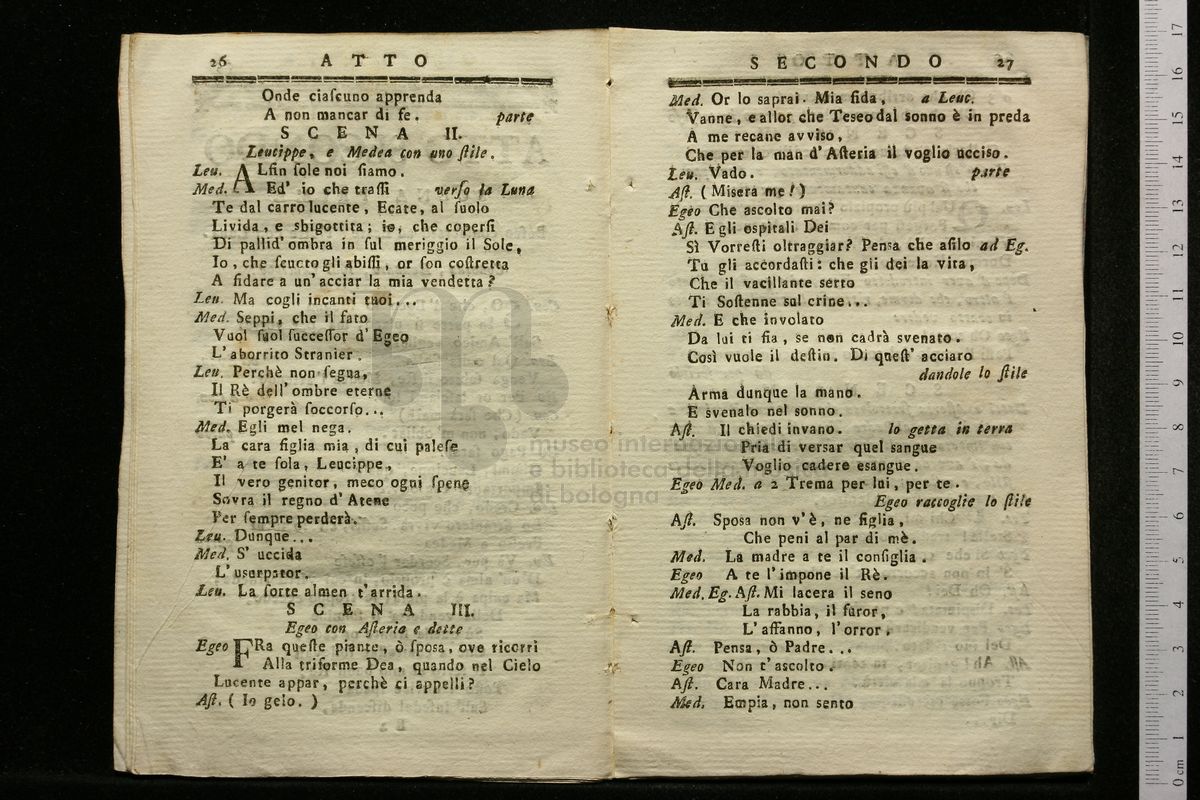 26 ATTO
Onde ciaſcuno apprenda
A non mancar di fe. parte
SCENA II.
Leucippe, e Medea con uno ſtile.
Leu. ALfin ſole noi ſiamo.
Med. Ed' io che traſſi verſo la Luna
Te dal carro lucente, Ecate, al ſuolo
Livida, e sbigottita; io, che coperſi
Di pallid' ombra in ſul meriggio il Sole,
Io, che ſcuoto gli abiſſi, or ſon coſtretta
A fidare a un' acciar la mia vendetta?
Leu. Ma cogli incanti tuoi...
Med. Seppi, che il fato
Vuol ſuol ſucceſſor d' Egeo
L' aborrito Stranier.
Leu. Perchè non ſegua,
Il Rè dell' ombre eterne
Ti porgerà ſoccorſo...
Med. Egli mel nega.
La cara figlia mia, di cui paleſe
E' a te ſola, Leucippe,
Il vero genitor, meco ogni ſpene
Sovra il regno d' Atene
Per ſempre perderà.
Leu. Dunque...
Med. S' uccida
L' usurpator.
Leu. La ſorte almen t'arrida.
SCENA III.
Egeo con Aſteria e dette
Egeo FRa queſte piante, ò ſposa, ove ricorri
Alla triforme Dea, quando nel Cielo
Lucente appar, perchè ci appelli?
Aſt. (Io gelo.)
SECONDO 27
Med. Or lo saprai. Mia fida, a Leuc.
Vanne, e allor che Teseo dal sonno è in preda
A me recane avviso,
Che per la man d' Aſteria il voglio ucciso.
Leu. Vado. parte
Aſt. (Misera me!)
Egeo Che ascolto mai?
Aſt. E gli ospitali Dei
Sì Vorreſti oltraggiar? Pensa che asilo ad Eg.
Tu gli accordaſti: che gli dei la vita,
Che il vacillante serto
Ti Soſtenne sul crine...
Med. E che involato
Da lui ti fia, se non cadrà svenato.
Così vuole il deſtin. Di queſt' acciaro
dandole lo ſtile
Arma dunque la mano.
E svenalo nel sonno.
Aſt. Il chiedi invano. lo getta in terra
Pria di versar quel sangue
Voglio cadere esangue.
Egeo Med. a 2 Trema per lui, per te.
Egeo raccoglie lo ſtile
Aſt. Sposa non v'è, ne figlia,
Che peni al par di mè.
Med. La madre a te il conſiglia.
Egeo A te l'impone il Rè.
Med. Eg. Aſt. Mi lacera il seno
La rabbia, il furor,
L' affanno, l'orror.
Aſt. Pensa, ò Padre...
Egeo Non t'ascolto.
Aſt. Cara Madre...
Med. Empia, non sento
museo internazionale
e biblioteca della
di bologna
0 cm 1 2 3 4 5 6 7 8 9 10 11 12 13 14 15 16 17